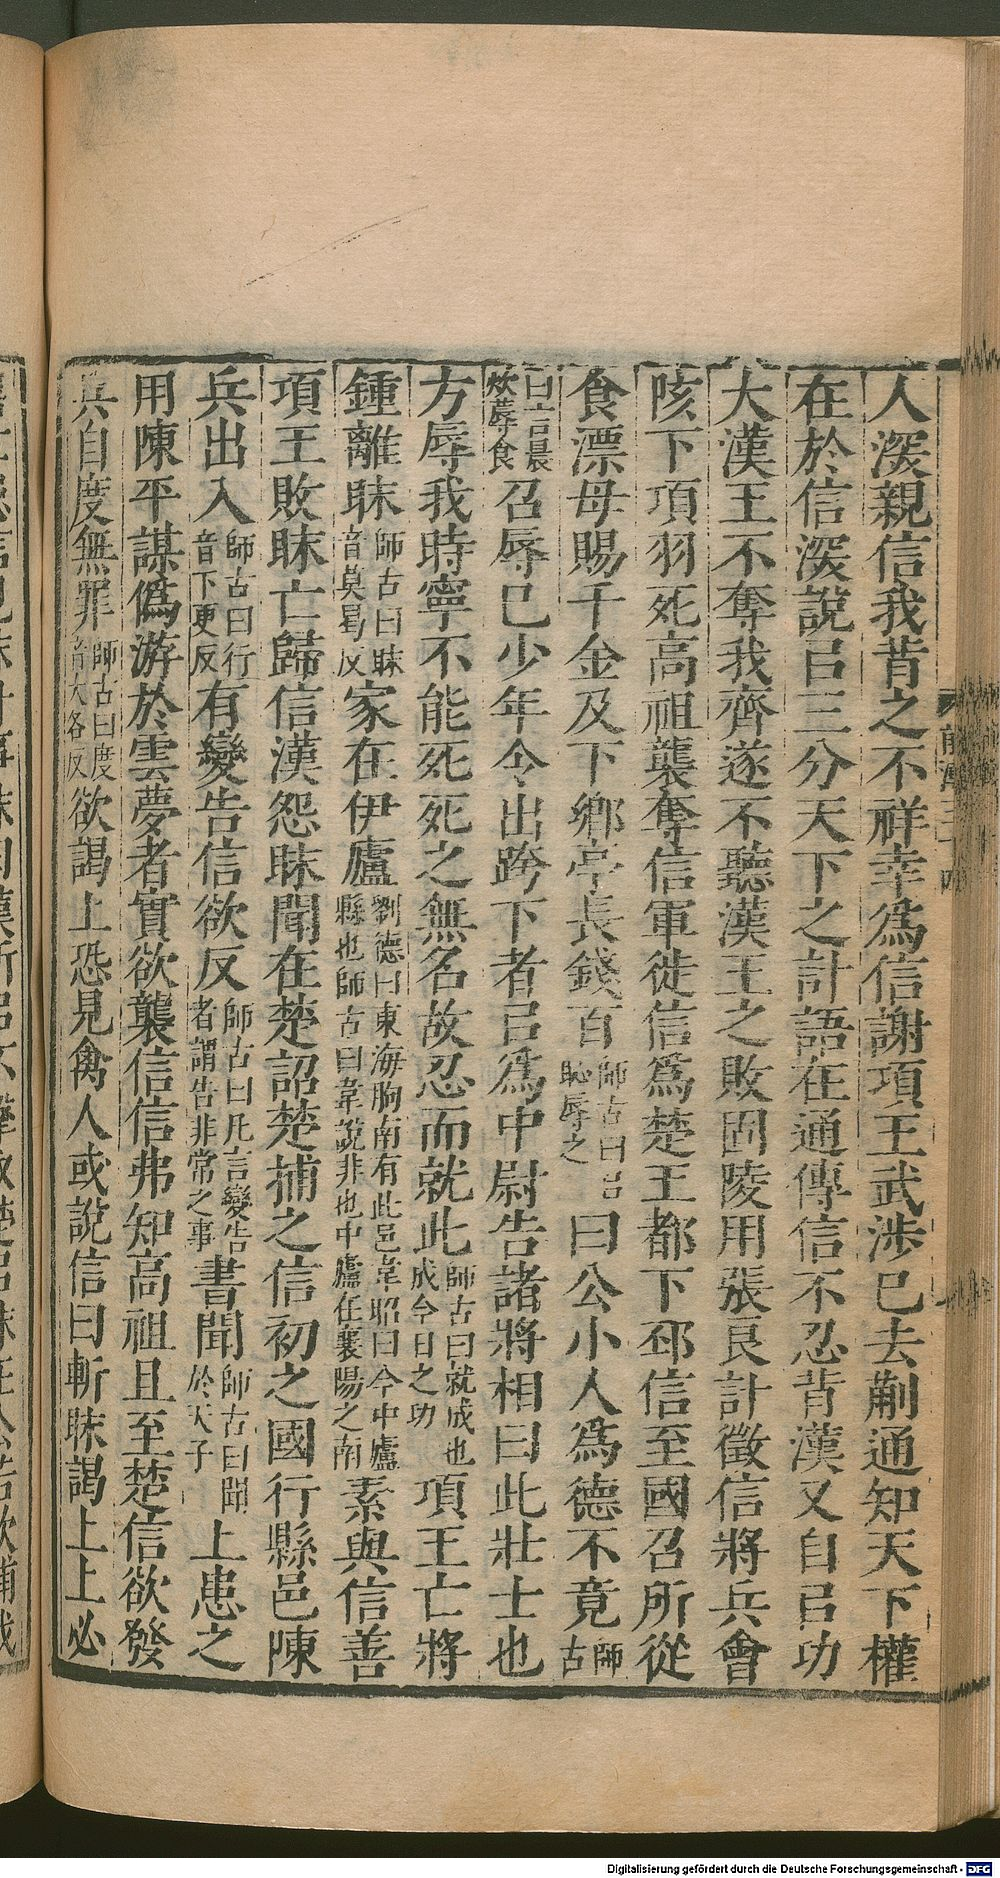 人深親信我背之不祥幸爲信謝項王武涉已去蒯通知天下權
在於信深說㠯三分天下之計語在通傳信不忍背漢又自㠯功
大漢王不奪我齊遂不聽漢王之敗固陵用張良計徵信將兵會
陔下項羽死高祖襲奪信軍徙信爲楚王都下邳信至國召所從
食漂母賜千金及下鄉亭長錢百師古曰㠯恥辱之曰公小人爲德不竟師古
曰言晨炊蓐食召辱已少年令出跨下者㠯爲中尉告諸將相曰此壯士也
方辱我時寧不能死死之無名故忍而就此師古曰就成也成今日之功項王亡將
鍾離眛師古曰眛音莫曷反家在伊廬劉德曰東海朐南有此邑韋昭曰今中廬縣也師古曰韋說非也中廬在襄陽之南素與信善
項王敗眛亡歸信漢怨眛聞在楚詔楚捕之信初之國行縣邑陳
兵出入師古曰行音下更反有變告信欲反師古曰凡言變告者謂告非常之事書聞師古曰聞於天子上患之
用陳平謀僞游於雲夢者實欲襲信信弗知高祖且至楚信欲發
兵自度無罪師古曰度音大各反欲謁上恐見禽人或說信曰斬眛謁上上必
前漢三十四
Digitalisierung gefördert durch die Deutsche Forschungsgemeinschaft - DFG